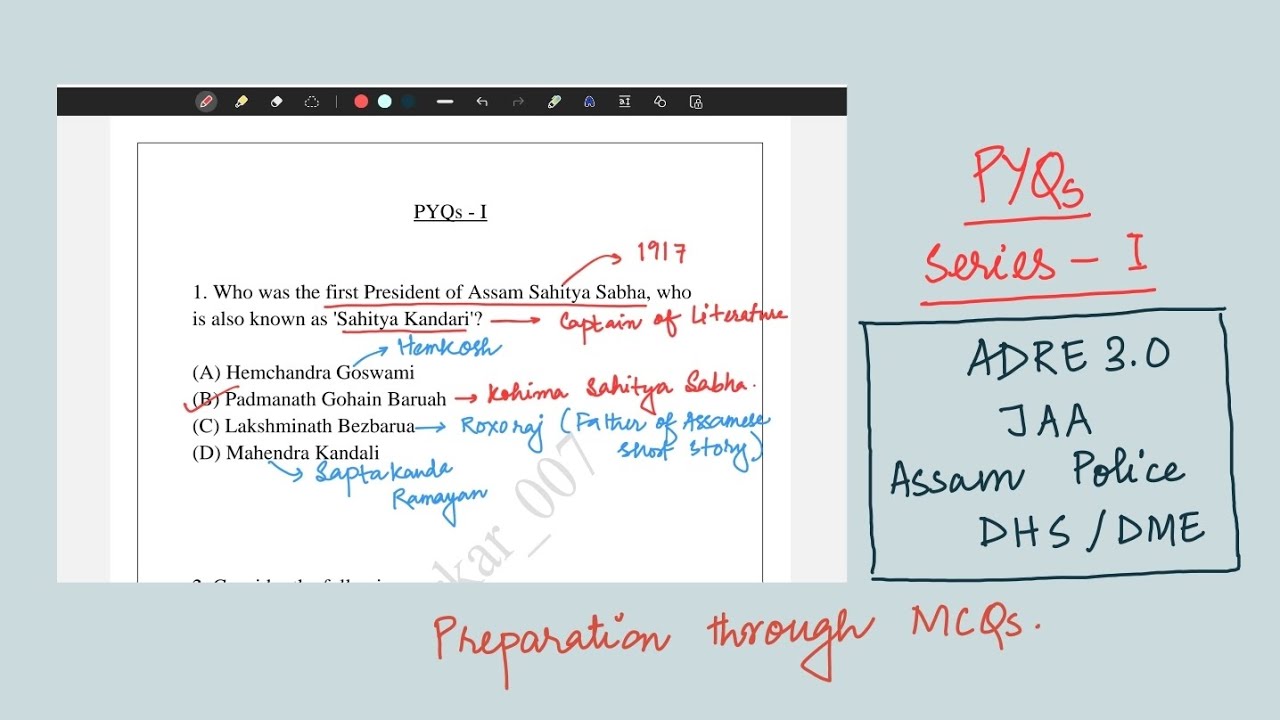 PYQs - I
1917
1. Who was the first President of Assam Sahitya Sabha, who
is also known as 'Sahitya Kandari'? → Captain of Literature
Hemkosh
(A) Hemchandra Goswami
(B) Padmanath Gohain Baruah → Kohima Sahitya Sabha.
(C) Lakshminath Bezbarua → Roxoraj (Father of Assamese
short story)
(D) Mahendra Kandali
Saptakanda
Ramayan
kar_007
PYQs
Series - I
ADRE 3.0
JAA
Assam Police
DHS / DME
Preparation through MCQs.